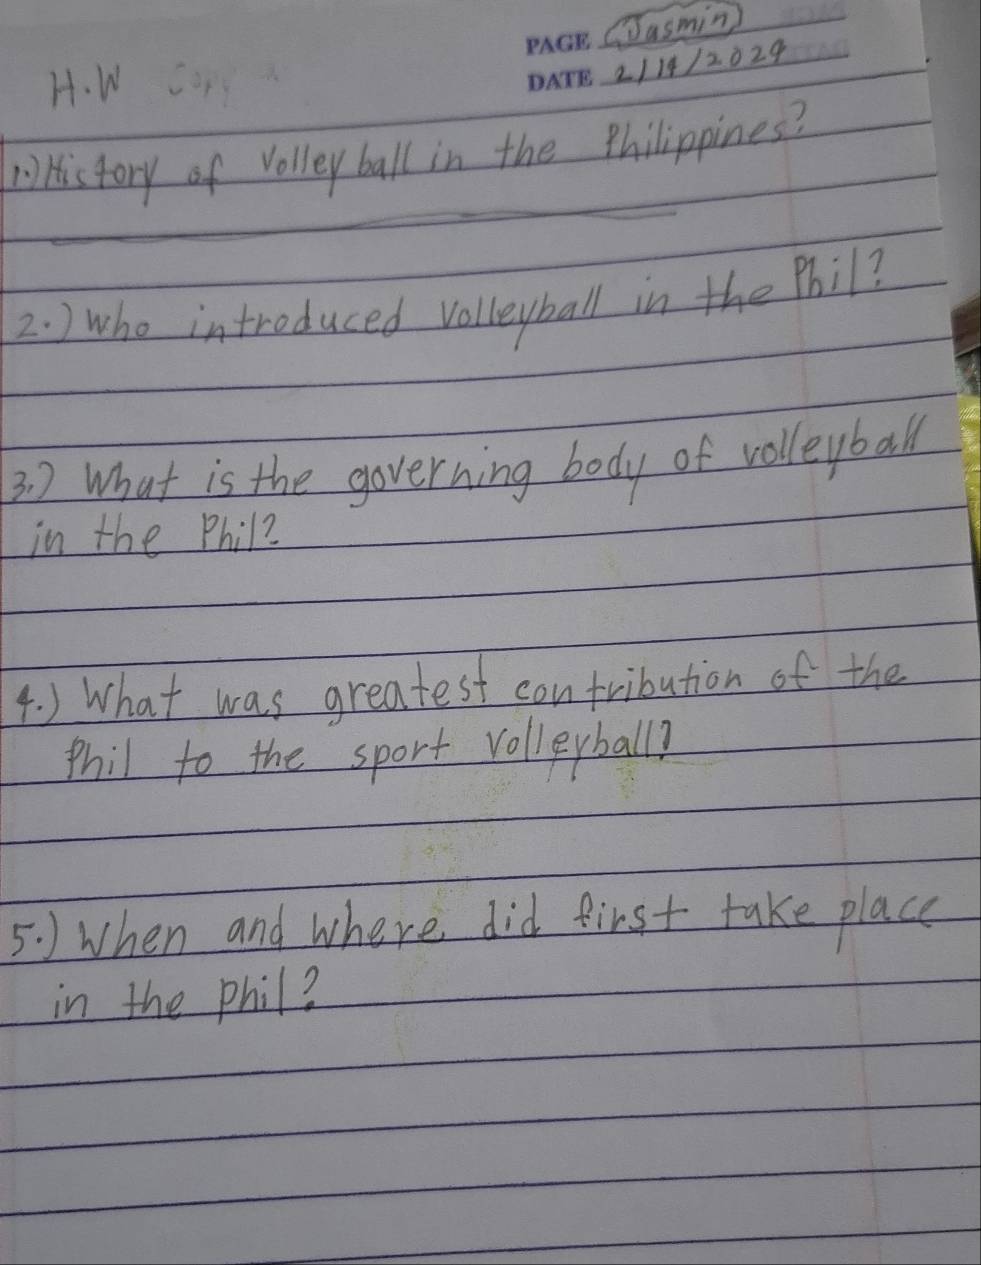 PAGE (Jasmin)
DATE 2/14/2024
H.W
1.) History of Volleyball in the Philippines?
2.) Who introduced Volleyball in the Phil?
3.) What is the governing body of volleyball
in the Phil?
4.) What was greatest contribution of the
Phil to the sport Volleyball?
5.) When and where did first take place
in the Phil?